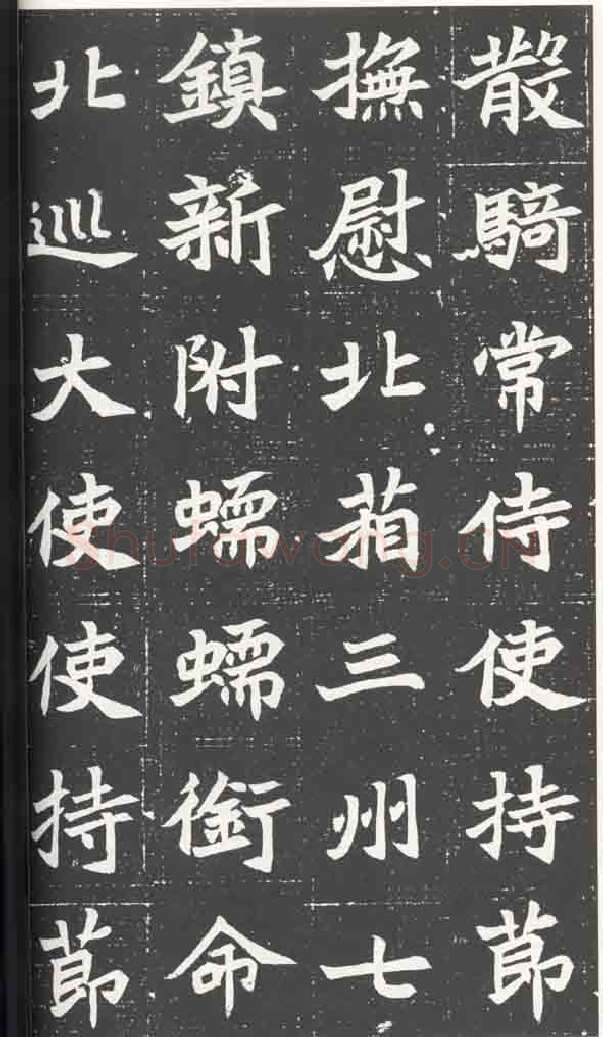 散騎常侍使持節
撫慰北葙三州七
鎮新附蠕蠕銜命
北巡大使使持節
shufawang.CN